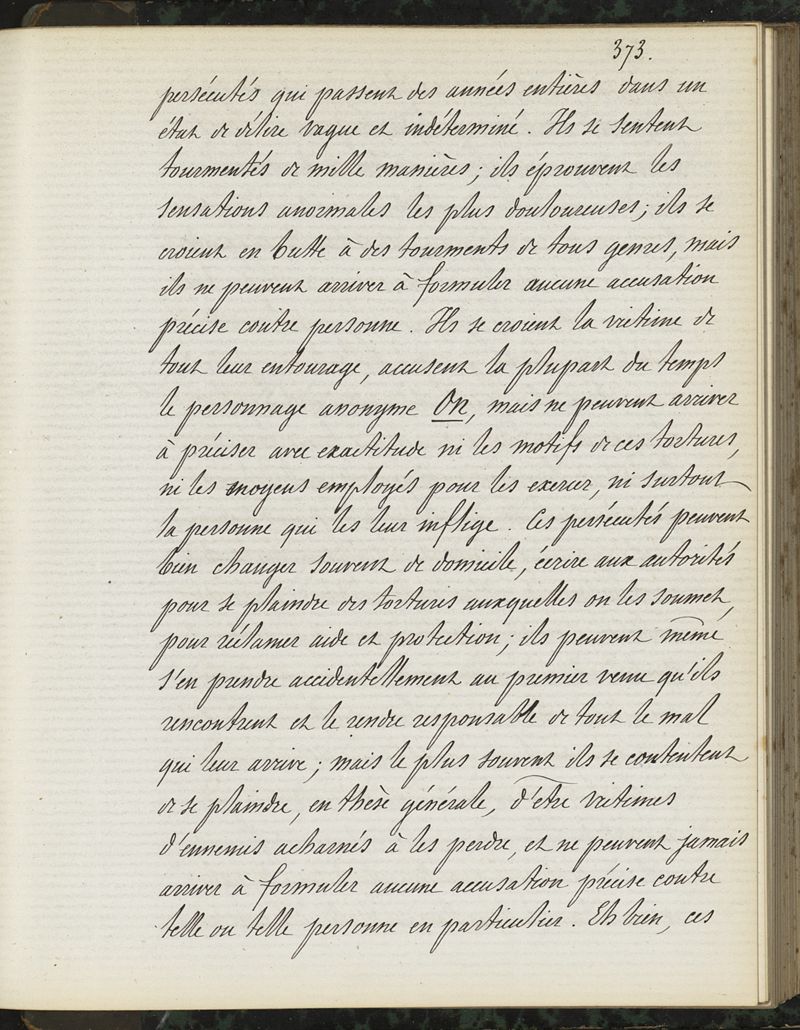 373.
persécutés qui passent des années entières dans un
état de délire vague et indéterminé. Ils se sentent
tourmentés de mille manières; ils éprouvent les
sensations anormales les plus douloureuses; ils se
croient en butte à des tourments de tous genres, mais
ils ne peuvent arriver à formuler aucune accusation
précise contre personne. Ils se croient la victime de
tout leur entourage, accusent la plupart du temps
le personnage anonyme On, mais ne peuvent arriver
à préciser avec exactitude ni les motifs de ces tortures,
ni les moyens employés pour les exercer, ni surtout
la personne qui les leur inflige. Ces persécutés peuvent
bien changer souvent de domicile, écrire aux autorités
pour se plaindre des tortures auxquelles on les soumet,
pour réclamer aide et protection; ils peuvent même
s'en prendre accidentellement au premier venu qu'ils
rencontrent et le rendre responsable de tout le mal
qui leur arrive; mais le plus souvent ils se contentent
de se plaindre, en thèse générale, d'être victimes
d'ennemis acharnés à les perdre, et ne peuvent jamais
arriver à formuler aucune accusation précise contre
telle ou telle personne en particulier. Eh bien, ces